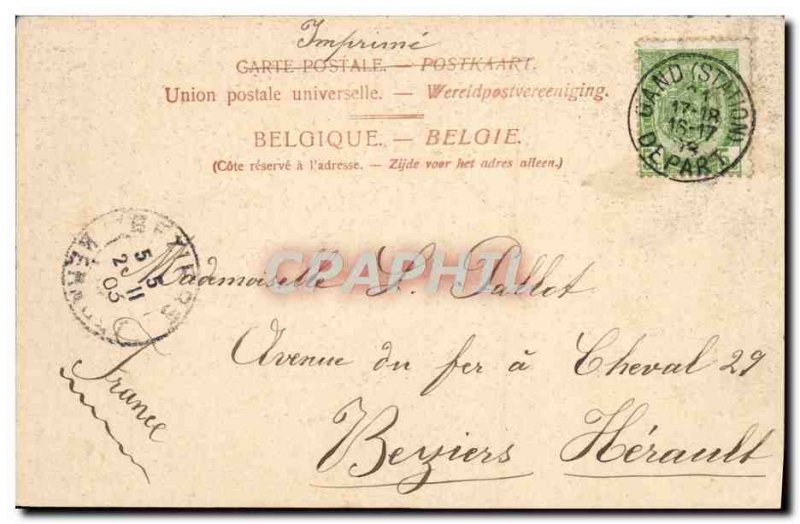 Imprimé
CARTE POSTALE. — POSTKAART.
Union postale universelle. — Wereldpostvereeniging.
BELGIQUE. — BELGIE.
(Côte réservé à l'adresse. — Zijde voor het adres alleen.)
GAND (STATION)
17-18
16-17
DEPART
BEZIERS
HERAULT
03
CPAPHIL
Mademoiselle S. Pallot
Avenue du fer à Cheval 29
Beziers Hérault
France